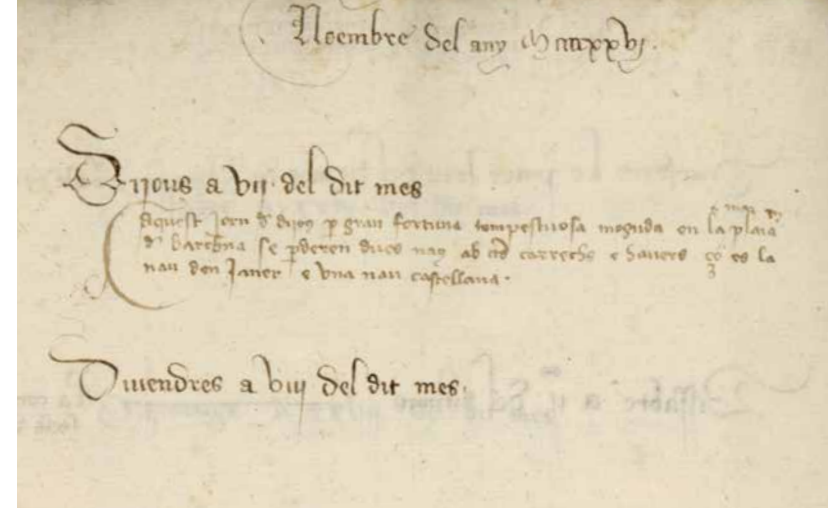 Noembre del any Mccccxxvj.
Dijous a vij. del dit mes
Aquest jorn d dijo9 p gran fortuna tempestuosa moguda en la plaia
d Barchna se pderen dues na9 ab carrechs e havers ço es la
nau den Janer e vna nau castellana.
Divendres a viij del dit mes.